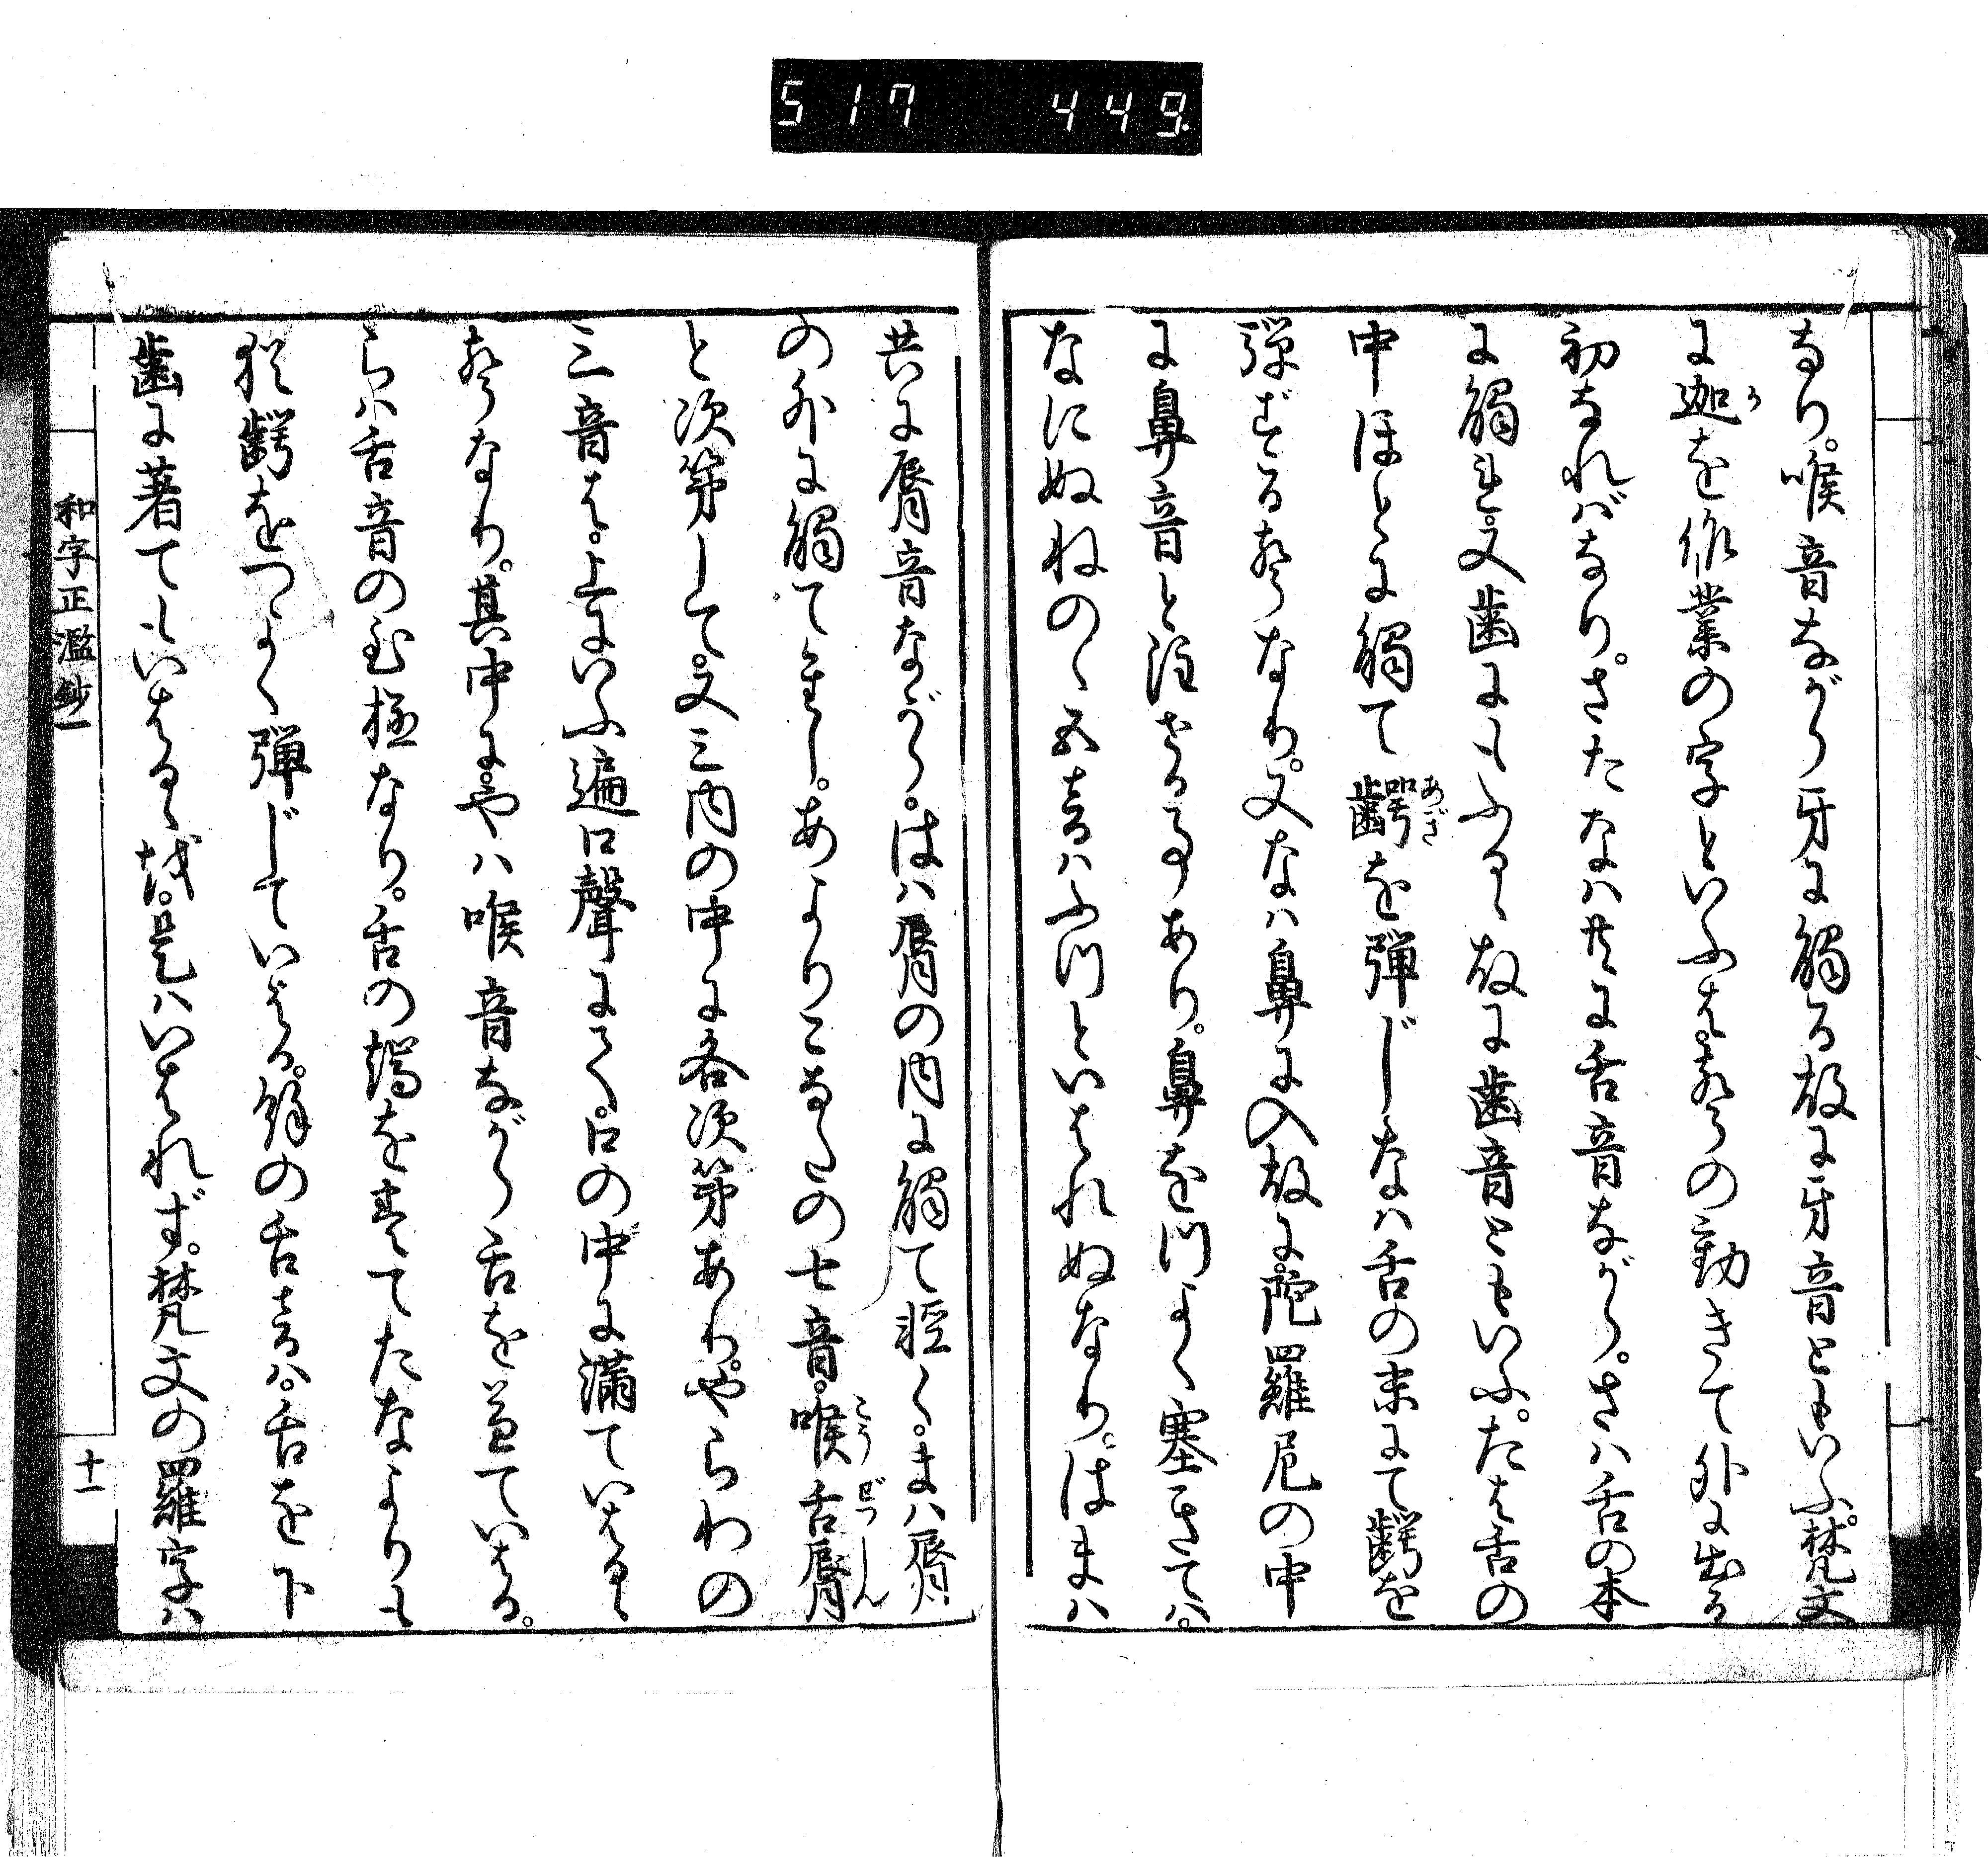 517 449.
なり。喉音ながら牙に觸る故に牙音ともいふ。梵文
に迦を作業の字といふは。聲の動きて外に出る
か
初なればなり。さたなハ共に舌音ながら。さハ舌の本
に觸れ。又歯にもふるゝ故に歯音ともいふ。たは舌の
中ほとに觸て齶を彈じ。なハ舌の末にて齶を
あぎ
彈ずる聲なり。又なハ鼻に入故に。陀羅尼の中
に鼻音と注せる事あり。鼻をつよく塞きてハ。
なにぬねのゝ五音ハふつといはれぬなり。はまハ
共に脣音ながら。はハ脣の内に觸て輕く。まハ脣
の外に觸て重し。あよりこなたの七音。喉舌脣
こうぜつしん
と次第して。又三内の中に各次第あり。やらわの
三音は。上にいふ遍口聲にて。口の中に滿ていはるゝ
聲なり。其中に。やハ喉音ながら舌を兼ていはる。
らハ舌音の至極なり。舌の端をすてたなよりも
猶齶をつよく彈じていはる。餘の舌音ハ。舌を下
歯に著てもいはるゝを。是ハいはれず。梵文の羅字ハ
和字正濫鈔一
十一